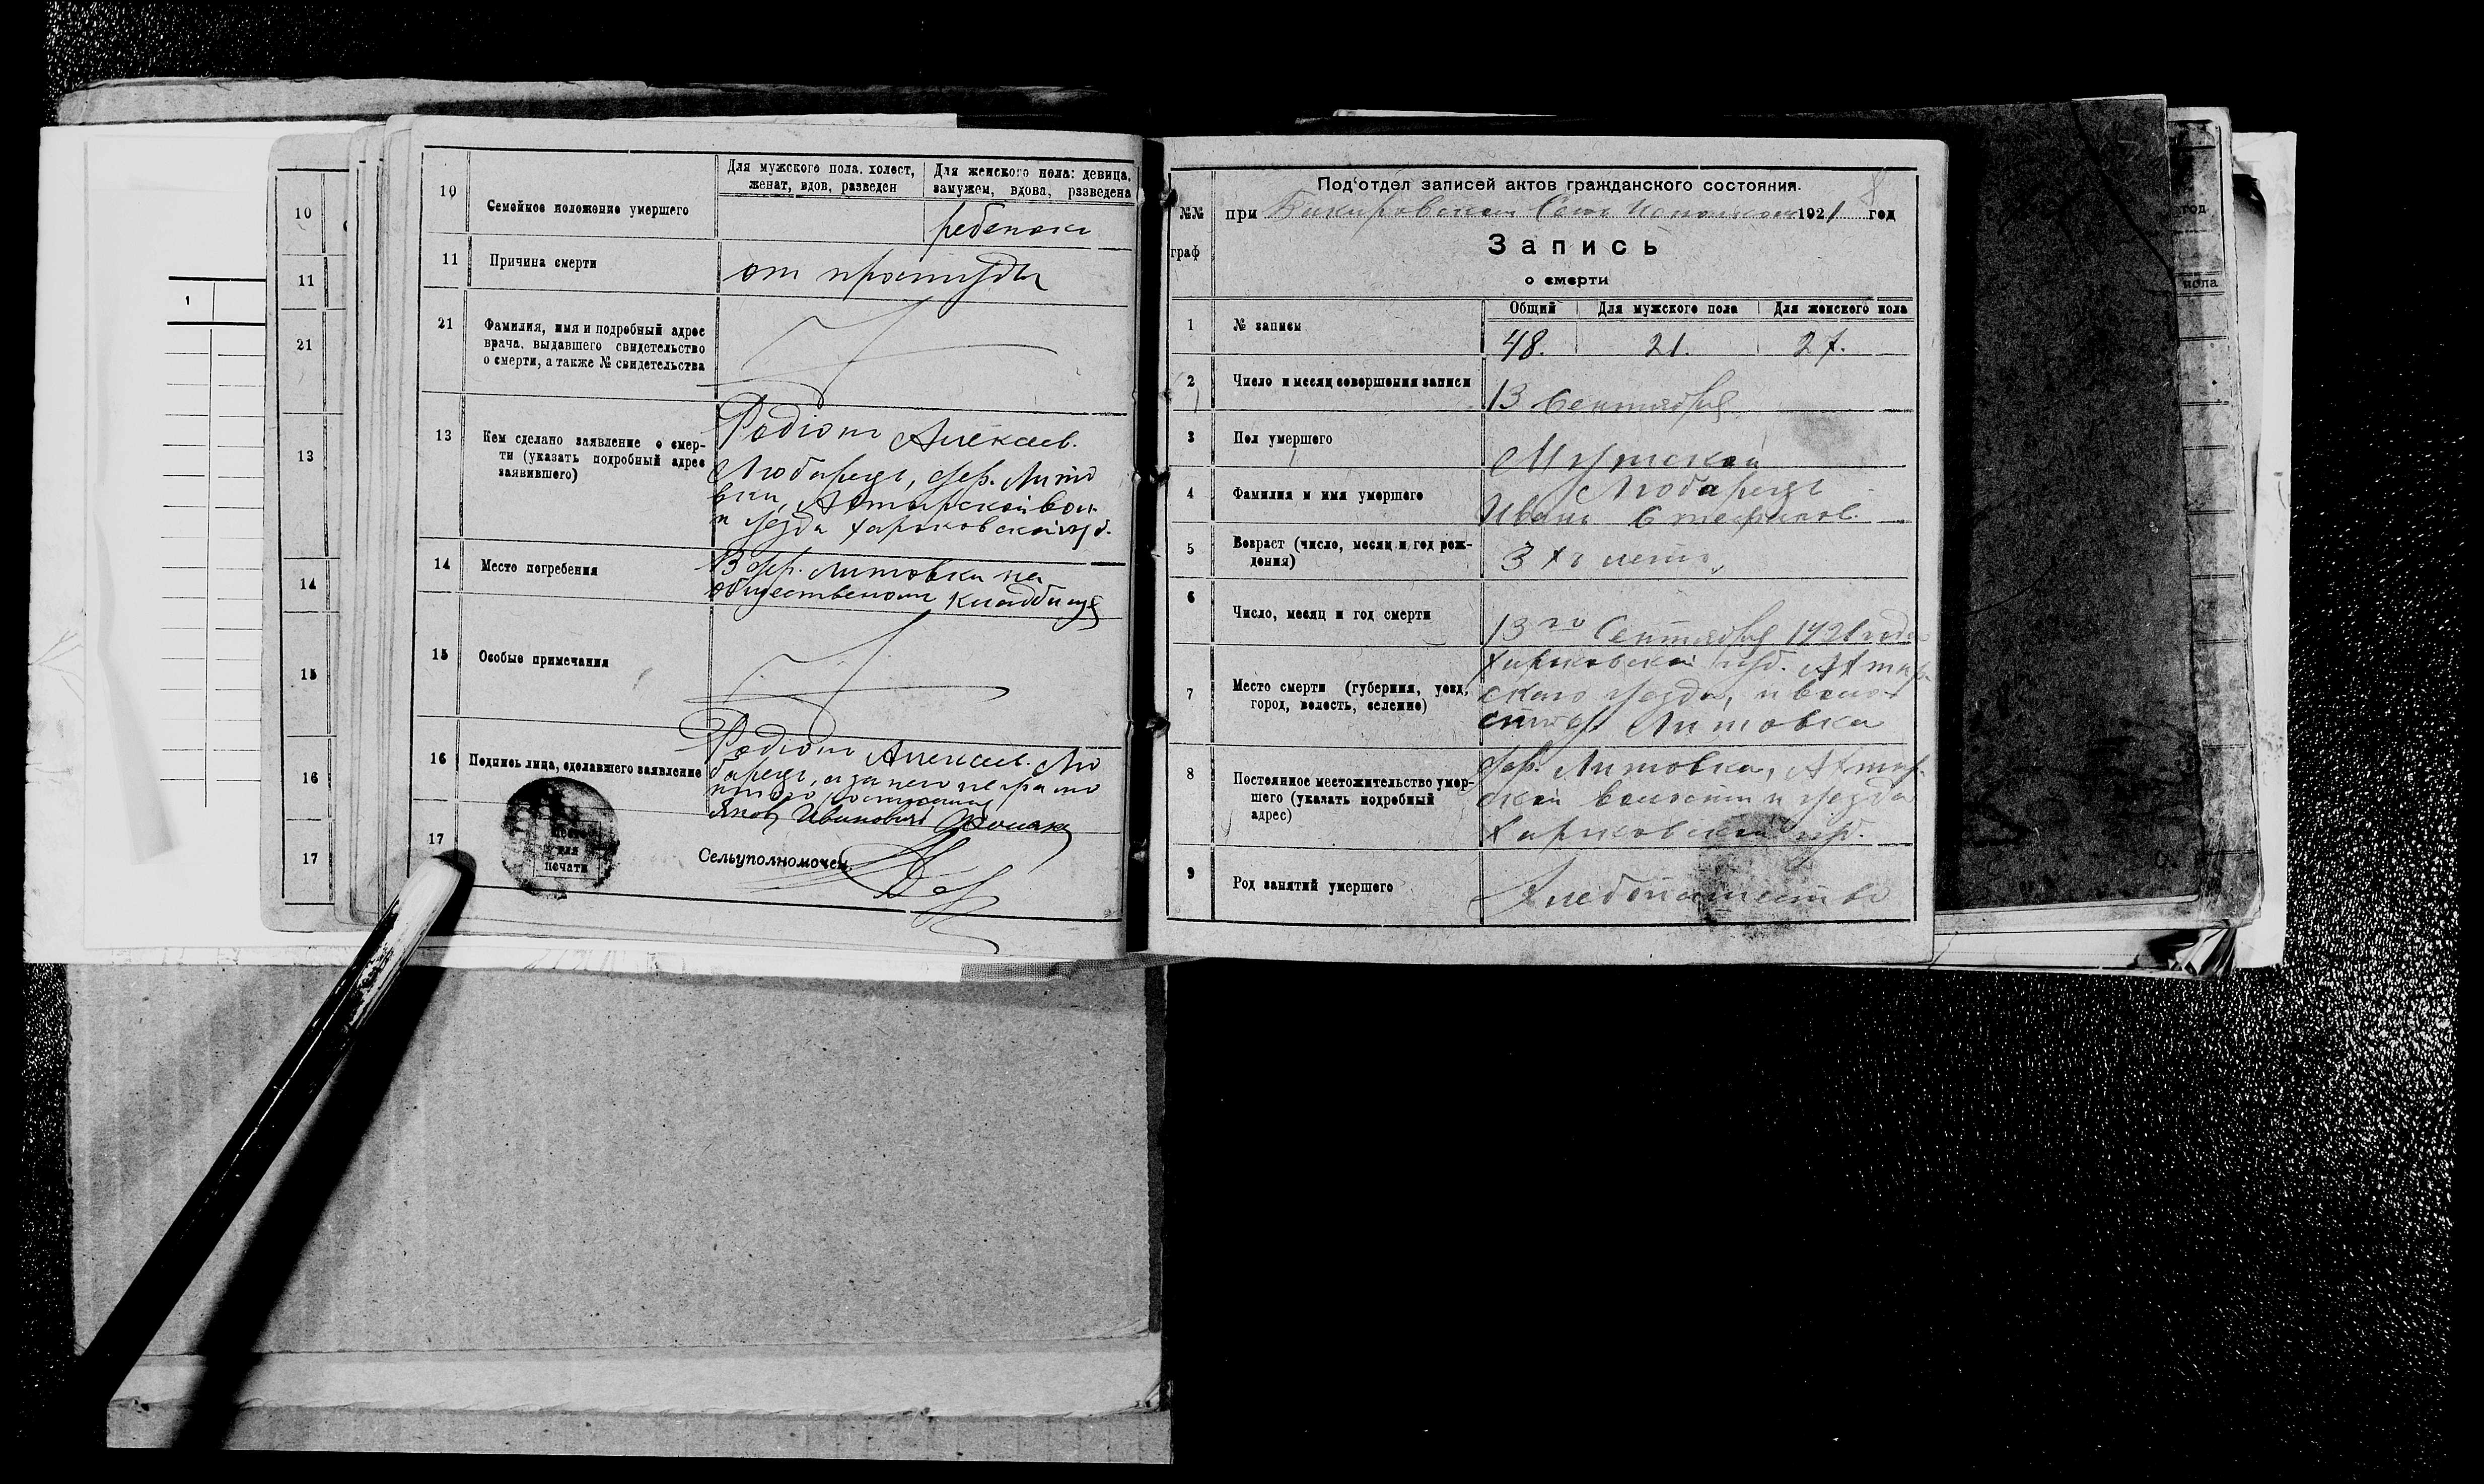 10
11
21
13
14
15
16
17
1
10
Семейное положение умершего
Для мужского пола. холост, женат, вдов, разведен
Для женского пола: девица, замужем, вдова, разведена
ребенокъ
11
Причина смерти
от простуды
21
Фамилия, имя и подробный адрес
врача, выдавшего свидетельство
о смерти, а также № свидетельства
13
Кем сделано заявление о смер-
ти (указать подробный адрес
заявившего)
Родіонъ Алексеев.
Любарецъ, дер. Лито
вки, Ахтырской вол.
и уезда Харьковской губ.
14
Место погребения
В дер. Литовки на
общественомъ кладбище
15
Особые примечания
16
Подпись лица, сделавшего заявление
Родіонъ Алексеев. Лю
барецъ, а за него неграмо
тного
Яковъ Ивановичъ
17
Место
для
печати
Сельуполномочен.
Под'отдел записей актов гражданского состояния.
№№
граф
при 1921 год
Запись
о смерти
1
№ записи
Общий
Для мужского пола
Для женского пола
48.
21.
27.
2
Число и месяц совершения записи
13 Сентября
3
Пол умершего
Мужской
4
Фамилия и имя умершего
Любарецъ
Иванъ Стефанов.
5
Возраст (число, месяц и год рож-
дения)
3 хъ летъ
6
Число, месяц и год смерти
13го Сентября 1921 года
7
Место смерти (губерния, уезд,
город, волость, селение)
Харьковской губ. Ахтыр
скаго уезда, и воло
сти д. Литовка
8
Постоянное местожительство умер-
шего (указать подробный
адрес)
дер. Литовка, Ахтыр.
ской волости и уезда
Харьковской губ.
9
Род занятий умершего
Хлебопашество
год
пола